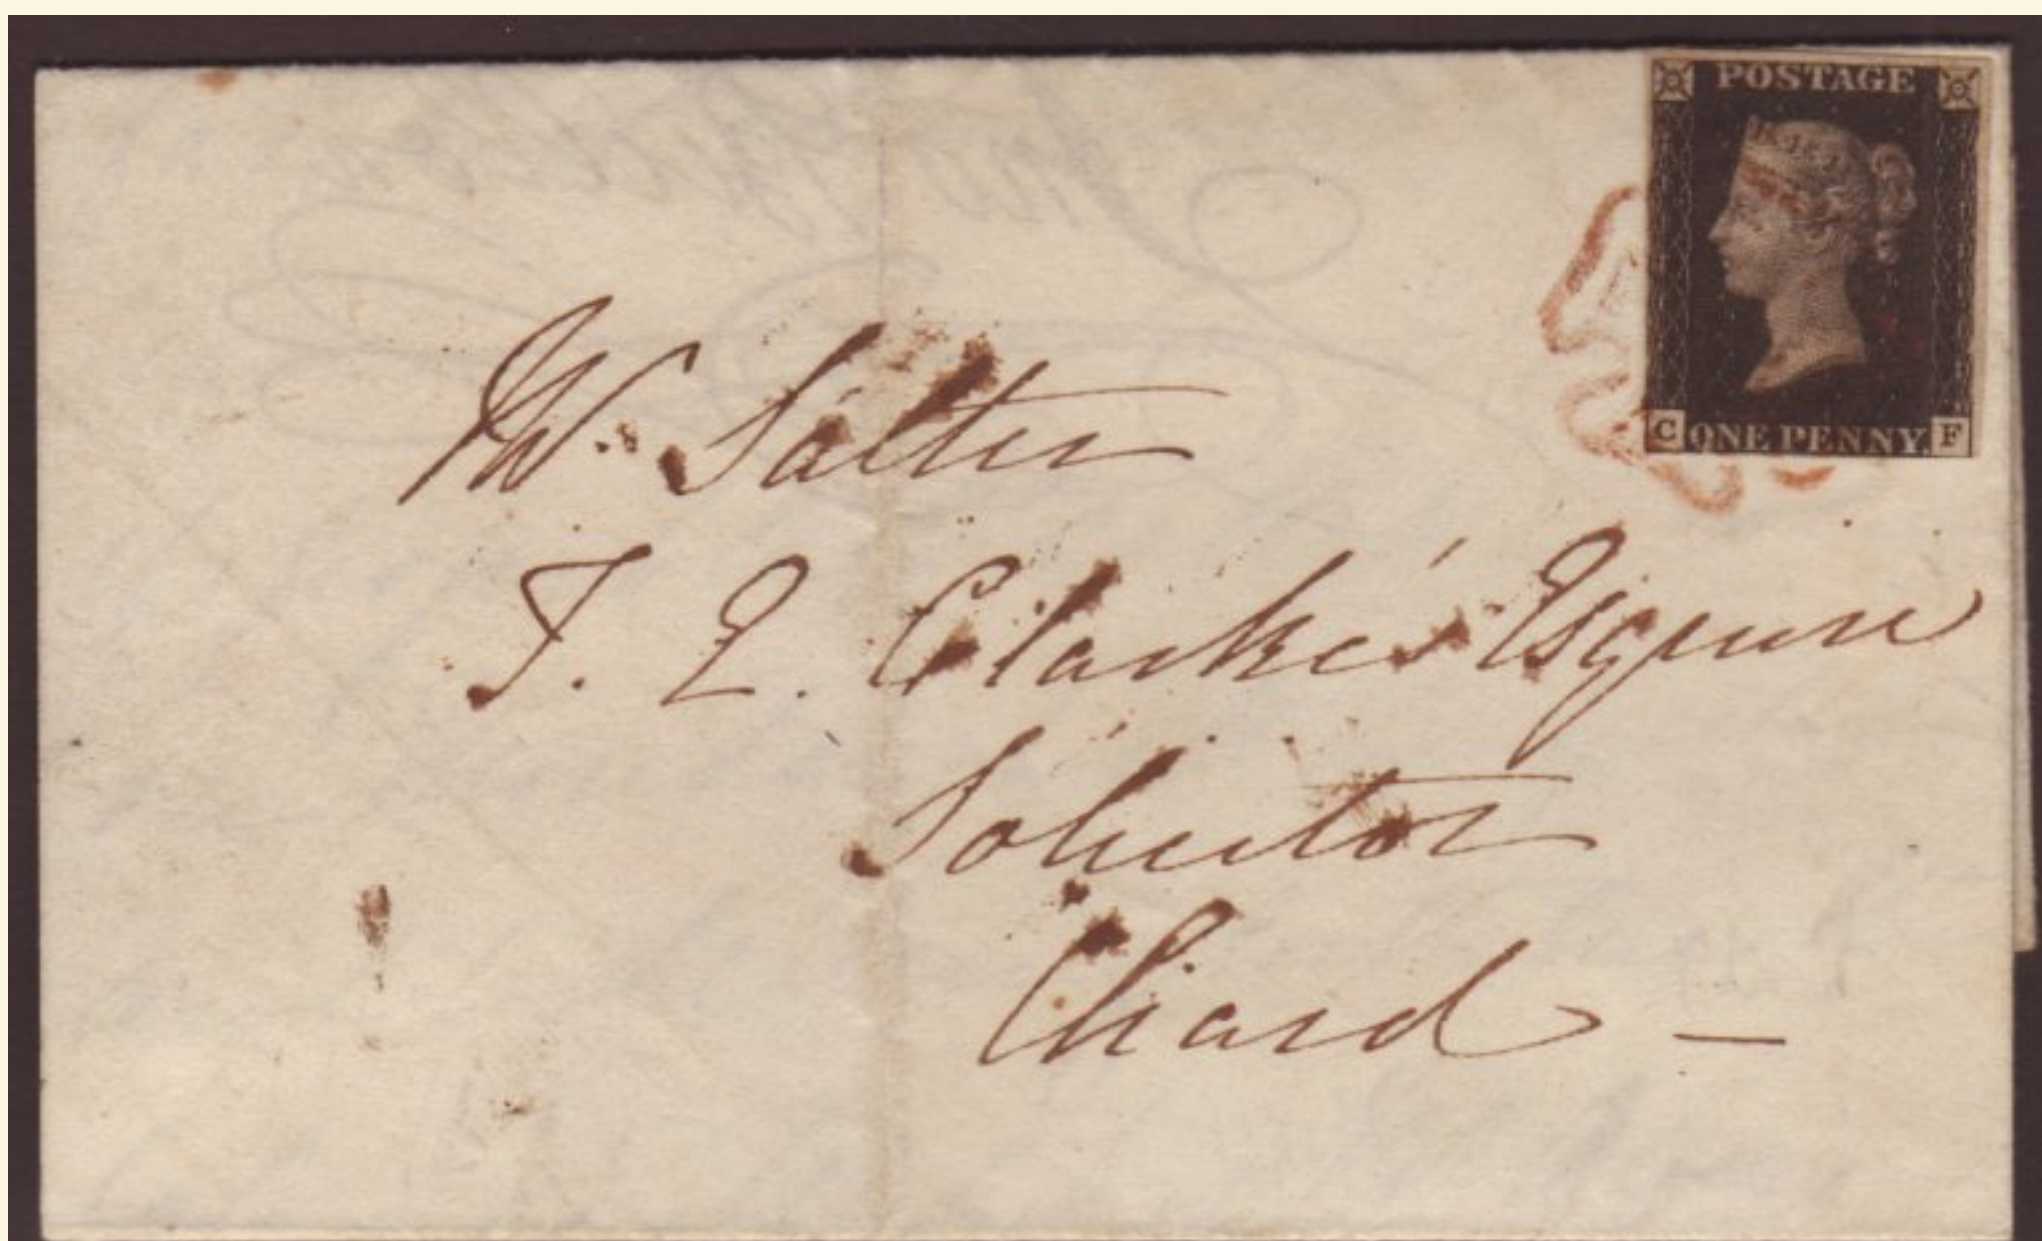 POSTAGE
C ONE PENNY. F
W. Salter
T. E. Clarke's Esquire
Solicitor
Chard —